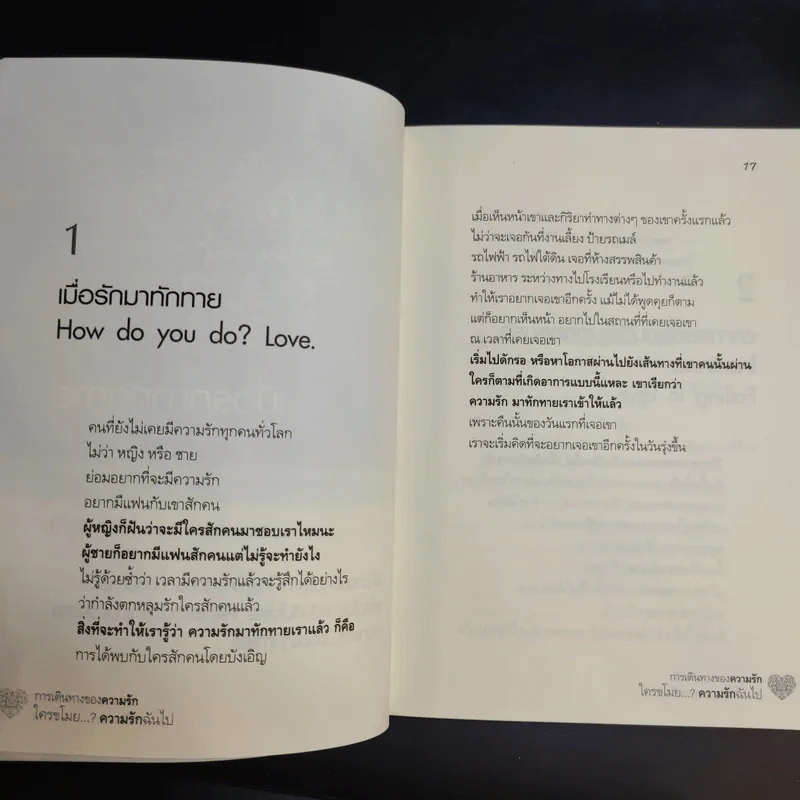 1
เมื่อรักมาทักทาย
How do you do? Love.
คนที่ยังไม่เคยมีความรักทุกคนทั่วโลก
ไม่ว่า หญิง หรือ ชาย
ย่อมอยากที่จะมีความรัก
อยากมีแฟนกับเขาสักคน
ผู้หญิงก็ฝันว่าจะมีใครสักคนมาชอบเราไหมนะ
ผู้ชายก็อยากมีแฟนสักคนแต่ไม่รู้จะทำยังไง
ไม่รู้ด้วยซ้ำว่า เวลามีความรักแล้วจะรู้สึกได้อย่างไร
ว่ากำลังตกหลุมรักใครสักคนแล้ว
สิ่งที่จะทำให้เรารู้ว่า ความรักมาทักทายเราแล้ว ก็คือ
การได้พบกับใครสักคนโดยบังเอิญ
การเดินทางของความรัก
ใครขโมย...? ความรักฉันไป
17
เมื่อเห็นหน้าเขาและกิริยาท่าทางต่างๆ ของเขาครั้งแรกแล้ว
ไม่ว่าจะเจอกันที่งานเลี้ยง ป้ายรถเมล์
รถไฟฟ้า รถไฟใต้ดิน เจอที่ห้างสรรพสินค้า
ร้านอาหาร ระหว่างทางไปโรงเรียนหรือไปทำงานแล้ว
ทำให้เราอยากเจอเขาอีกครั้ง แม้ไม่ได้พูดคุยก็ตาม
แต่ก็อยากเห็นหน้า อยากไปในสถานที่ที่เคยเจอเขา
ณ เวลาที่เคยเจอเขา
เริ่มไปดักรอ หรือหาโอกาสผ่านไปยังเส้นทางที่เขาคนนั้นผ่าน
ใครก็ตามที่เกิดอาการแบบนี้แหละ เขาเรียกว่า
ความรัก มาทักทายเราเข้าให้แล้ว
เพราะคืนนั้นของวันแรกที่เจอเขา
เราจะเริ่มคิดที่จะอยากเจอเขาอีกครั้งในวันรุ่งขึ้น
การเดินทางของความรัก
ใครขโมย...? ความรักฉันไป